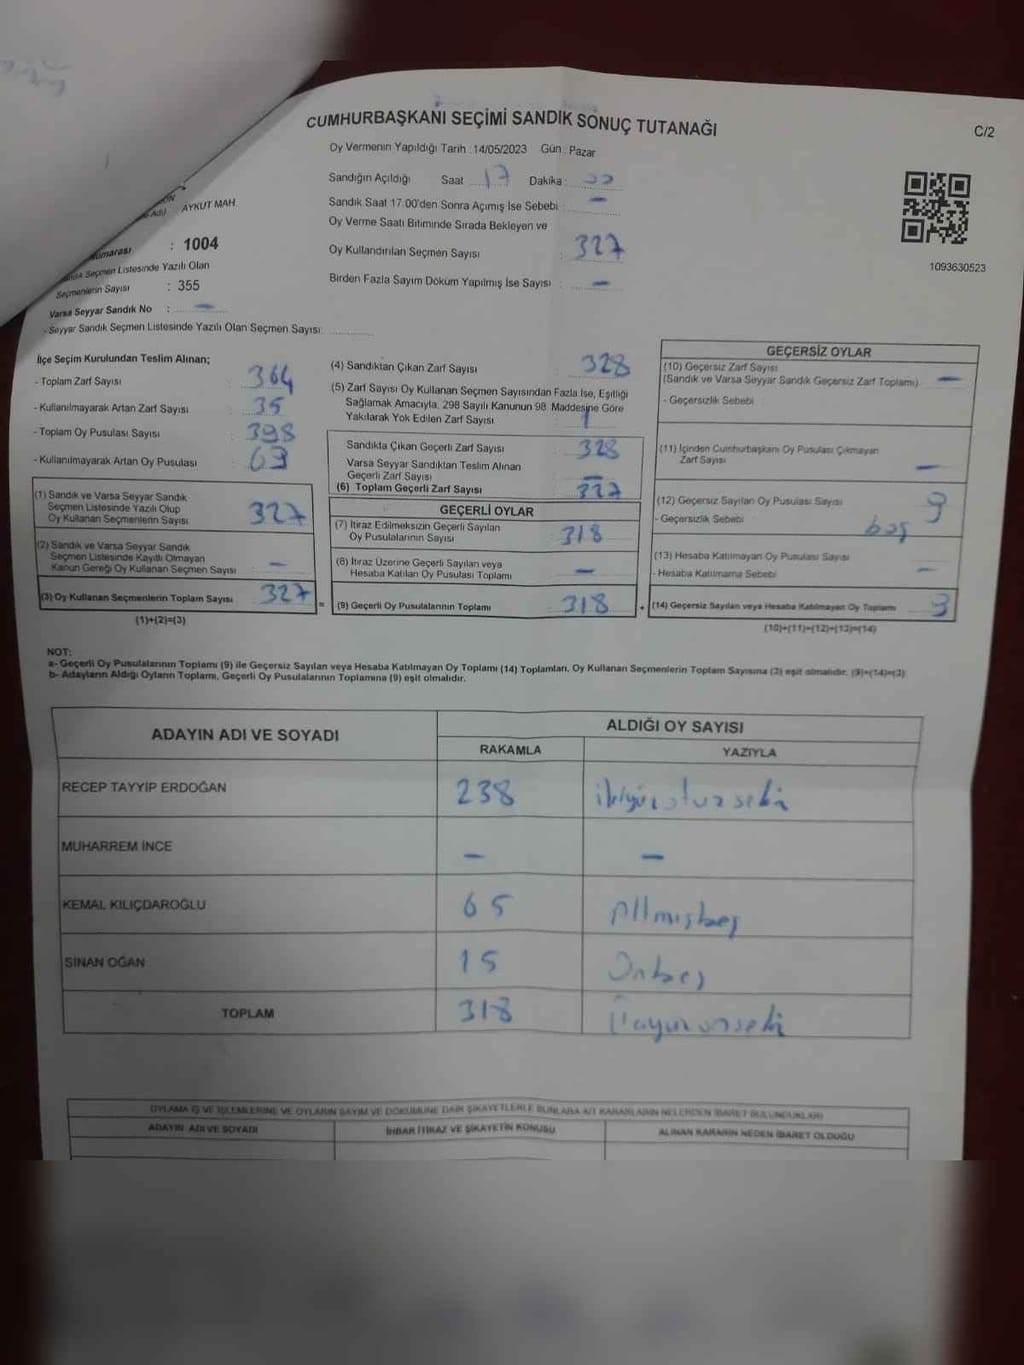 CUMHURBAŞKANI SEÇİMİ SANDIK SONUÇ TUTANAĞI
C/2
Oy Vermenin Yapıldığı Tarih : 14/05/2023 Gün : Pazar
Sandığın Açıldığı Saat 17 Dakika :
Sandık Saat 17:00'den Sonra Açımış İse Sebebi : -
Oy Verme Saati Bitiminde Sırada Bekleyen ve
Oy Kullandırılan Seçmen Sayısı : 327
Birden Fazla Sayım Döküm Yapılmış İse Sayısı : -
1093630523
AYKUT MAH
: 1004
Seçmen Listesinde Yazılı Olan
Seçmenlerin Sayısı : 355
Varsa Seyyar Sandık No : -
- Seyyar Sandık Seçmen Listesinde Yazılı Olan Seçmen Sayısı:
İlçe Seçim Kurulundan Teslim Alınan;
- Toplam Zarf Sayısı : 364
- Kullanılmayarak Artan Zarf Sayısı : 35
- Toplam Oy Pusulası Sayısı : 398
- Kullanılmayarak Artan Oy Pusulası : 69
(1) Sandık ve Varsa Seyyar Sandık
Seçmen Listesinde Yazılı Olup
Oy Kullanan Seçmenlerin Sayısı : 327
(2) Sandık ve Varsa Seyyar Sandık
Seçmen Listesinde Kayıtlı Olmayan
Kanun Gereği Oy Kullanan Seçmen Sayısı : -
(3) Oy Kullanan Seçmenlerin Toplam Sayısı 327
(1)+(2)=(3)
(4) Sandıktan Çıkan Zarf Sayısı : 328
(5) Zarf Sayısı Oy Kullanan Seçmen Sayısından Fazla İse, Eşitliği
Sağlamak Amacıyla, 298 Sayılı Kanunun 98. Maddesine Göre
Yakılarak Yok Edilen Zarf Sayısı : 1
Sandıkta Çıkan Geçerli Zarf Sayısı : 328
Varsa Seyyar Sandıktan Teslim Alınan
Geçerli Zarf Sayısı : -
(6) Toplam Geçerli Zarf Sayısı : 327
GEÇERLİ OYLAR
(7) İtiraz Edilmeksizin Geçerli Sayılan
Oy Pusulalarının Sayısı : 318
(8) İtiraz Üzerine Geçerli Sayılan veya
Hesaba Katılan Oy Pusulası Toplamı : -
= (9) Geçerli Oy Pusulalarının Toplamı : 318
GEÇERSİZ OYLAR
(10) Geçersiz Zarf Sayısı
(Sandık ve Varsa Seyyar Sandık Geçersiz Zarf Toplamı) : -
- Geçersizlik Sebebi :
(11) İçinden Cumhurbaşkanı Oy Pusulası Çıkmayan
Zarf Sayısı : -
(12) Geçersiz Sayılan Oy Pusulası Sayısı : 9
- Geçersizlik Sebebi : boş
(13) Hesaba Katılmayan Oy Pusulası Sayısı : -
- Hesaba Katılmama Sebebi :
+ (14) Geçersiz Sayılan veya Hesaba Katılmayan Oy Toplamı : 9
(10)+(11)+(12)+(13)=(14)
NOT:
a- Geçerli Oy Pusulalarının Toplamı (9) ile Geçersiz Sayılan veya Hesaba Katılmayan Oy Toplamı (14) Toplamları, Oy Kullanan Seçmenlerin Toplam Sayısına (3) eşit olmalıdır. (9)+(14)=(3)
b- Adayların Aldığı Oyların Toplamı, Geçerli Oy Pusulalarının Toplamına (9) eşit olmalıdır.
ADAYIN ADI VE SOYADI
ALDIĞI OY SAYISI
RAKAMLA YAZIYLA
RECEP TAYYİP ERDOĞAN 238 ikiyüzotuzsekiz
MUHARREM İNCE - -
KEMAL KILIÇDAROĞLU 65 Altmışbeş
SİNAN OĞAN 15 Onbeş
TOPLAM 318 Üçyüzonsekiz
OYLAMA İŞ VE İŞLEMLERİNE VE OYLARIN SAYIM VE DÖKÜMÜNE DAİR ŞİKAYETLERLE BUNLARA AİT KARARLARIN NELERDEN İBARET BULUNDUKLARI
ADAYIN ADI VE SOYADI İHBAR İTİRAZ VE ŞİKAYETİN KONUSU ALINAN KARARIN NEDEN İBARET OLDUĞU